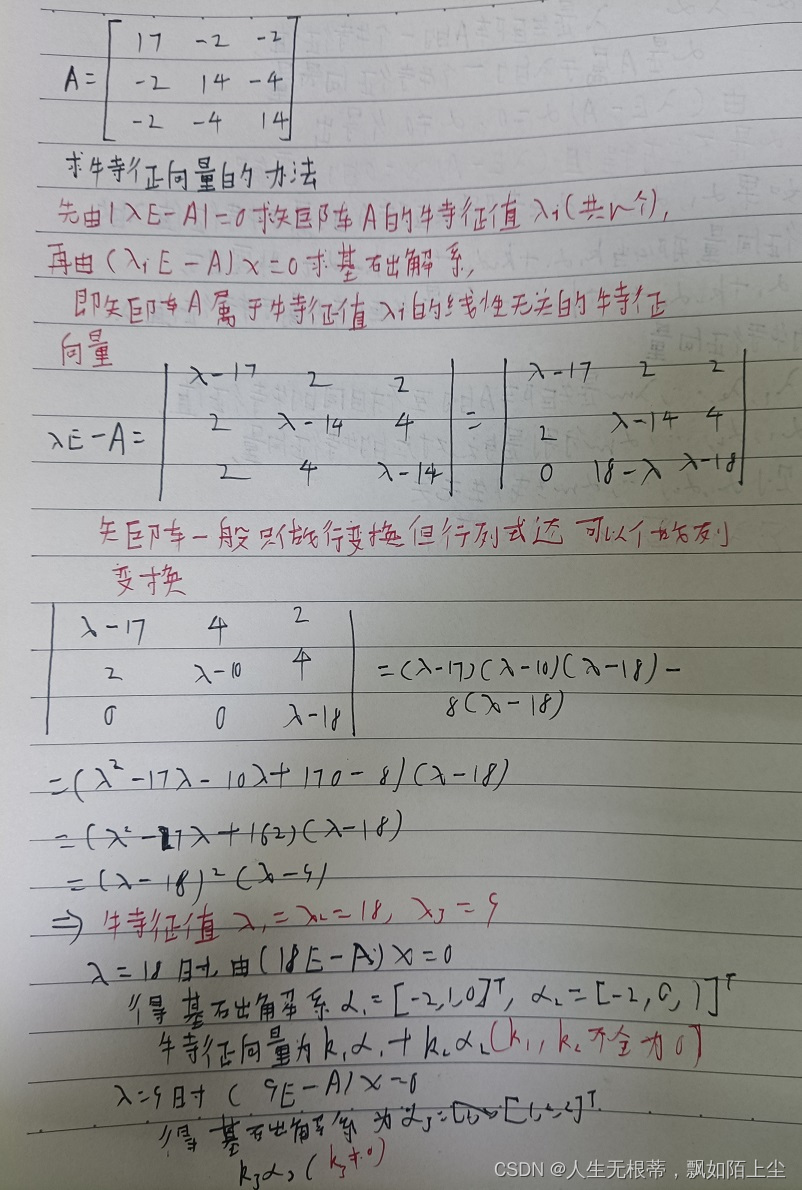 A= [ 17 -2 -2
-2 14 -4
-2 -4 14 ]
求特征向量的办法
先由|λE-A|=0求矩阵A的特征值λi(共n个),
再由(λiE-A)x=0求基础解系,
即矩阵A属于特征值λi的线性无关的特征
向量
λE-A= | λ-17 2 2 | = | λ-17 2 2 |
| 2 λ-14 4 | | 2 λ-14 4 |
| 2 4 λ-14 | | 0 18-λ λ-18 |
矩阵一般只做行变换但行列式还可以做列
变换
| λ-17 4 2 |
| 2 λ-10 4 | =(λ-17)(λ-10)(λ-18)-
| 0 0 λ-18 | 8(λ-18)
=(λ²-17λ-10λ+170-8)(λ-18)
=(λ²-27λ+162)(λ-18)
=(λ-18)²(λ-9)
⇒ 特征值λ₁=λ₂=18, λ₃=9
λ=18时,由(18E-A)x=0
得基础解系α₁=[-2,1,0]ᵀ, α₂=[-2,0,1]ᵀ
特征向量为k₁α₁+k₂α₂(k₁,k₂不全为0)
λ=9时 (9E-A)x=0
得基础解系为α₃=[1,2,2]ᵀ
k₃α₃(k₃≠0)
CSDN @人生无根蒂,飘如陌上尘